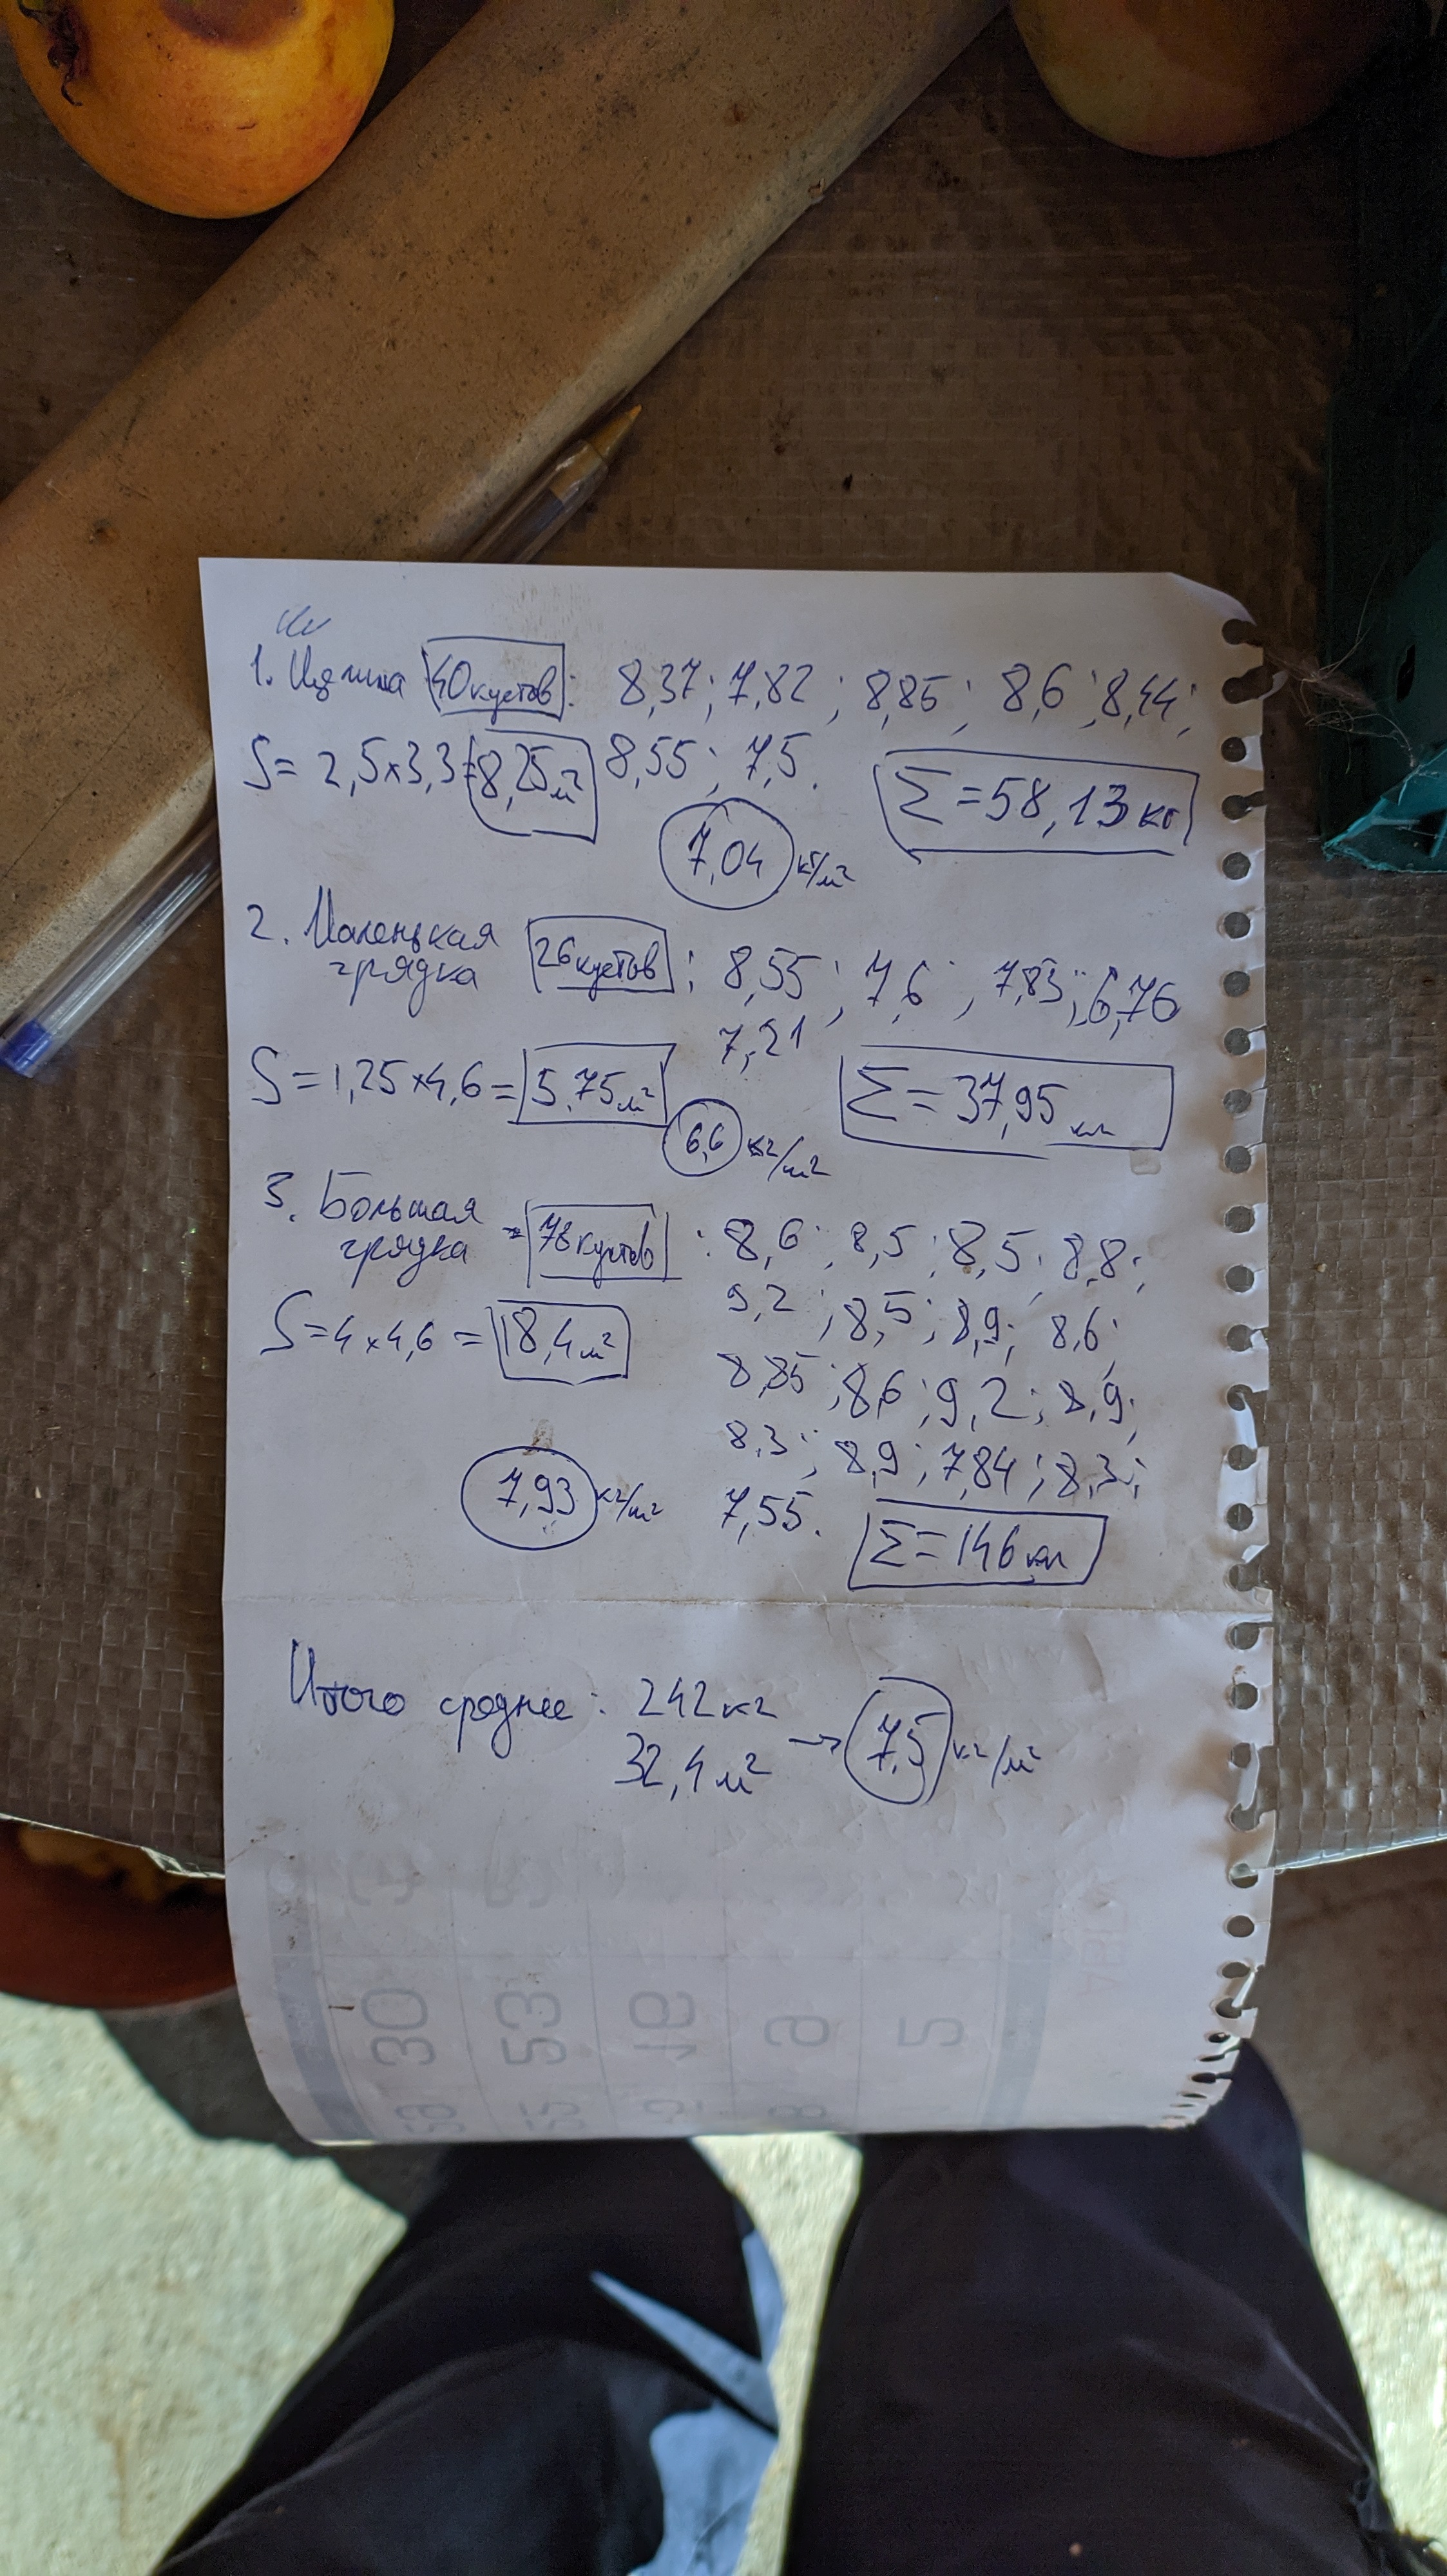 1. Целина 40 кустов: 8,37; 7,82; 8,85; 8,6; 8,44;
S = 2,5×3,3 = 8,25 м² 8,55; 7,5. Σ = 58,13 кг
7,04 кг/м²
2. Маленькая грядка 26 кустов: 8,55; 7,6; 7,83; 6,76
7,21
S = 1,25×4,6 = 5,75 м² Σ = 37,95 кг
6,6 кг/м²
3. Большая грядка = 78 кустов: 8,6; 8,5; 8,5; 8,8;
9,2; 8,5; 8,9; 8,6;
S = 4×4,6 = 18,4 м²
8,85; 8,6; 9,2; 8,9;
8,3; 8,9; 7,84; 8,3;
7,93 кг/м² 7,55. Σ = 146 кг
Итого среднее: 242 кг
32,4 м² → 7,5 кг/м²